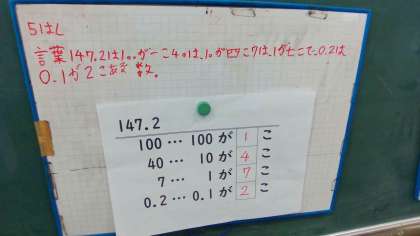 5はん
言葉147.2は100が一こ40は10が四こ7は1が七こで、0.2は
0.1が2こあぞ 数。
147.2
100… 100が 1 こ
40… 10が 4 こ
7… 1が 7 こ
0.2… 0.1が 2 こ